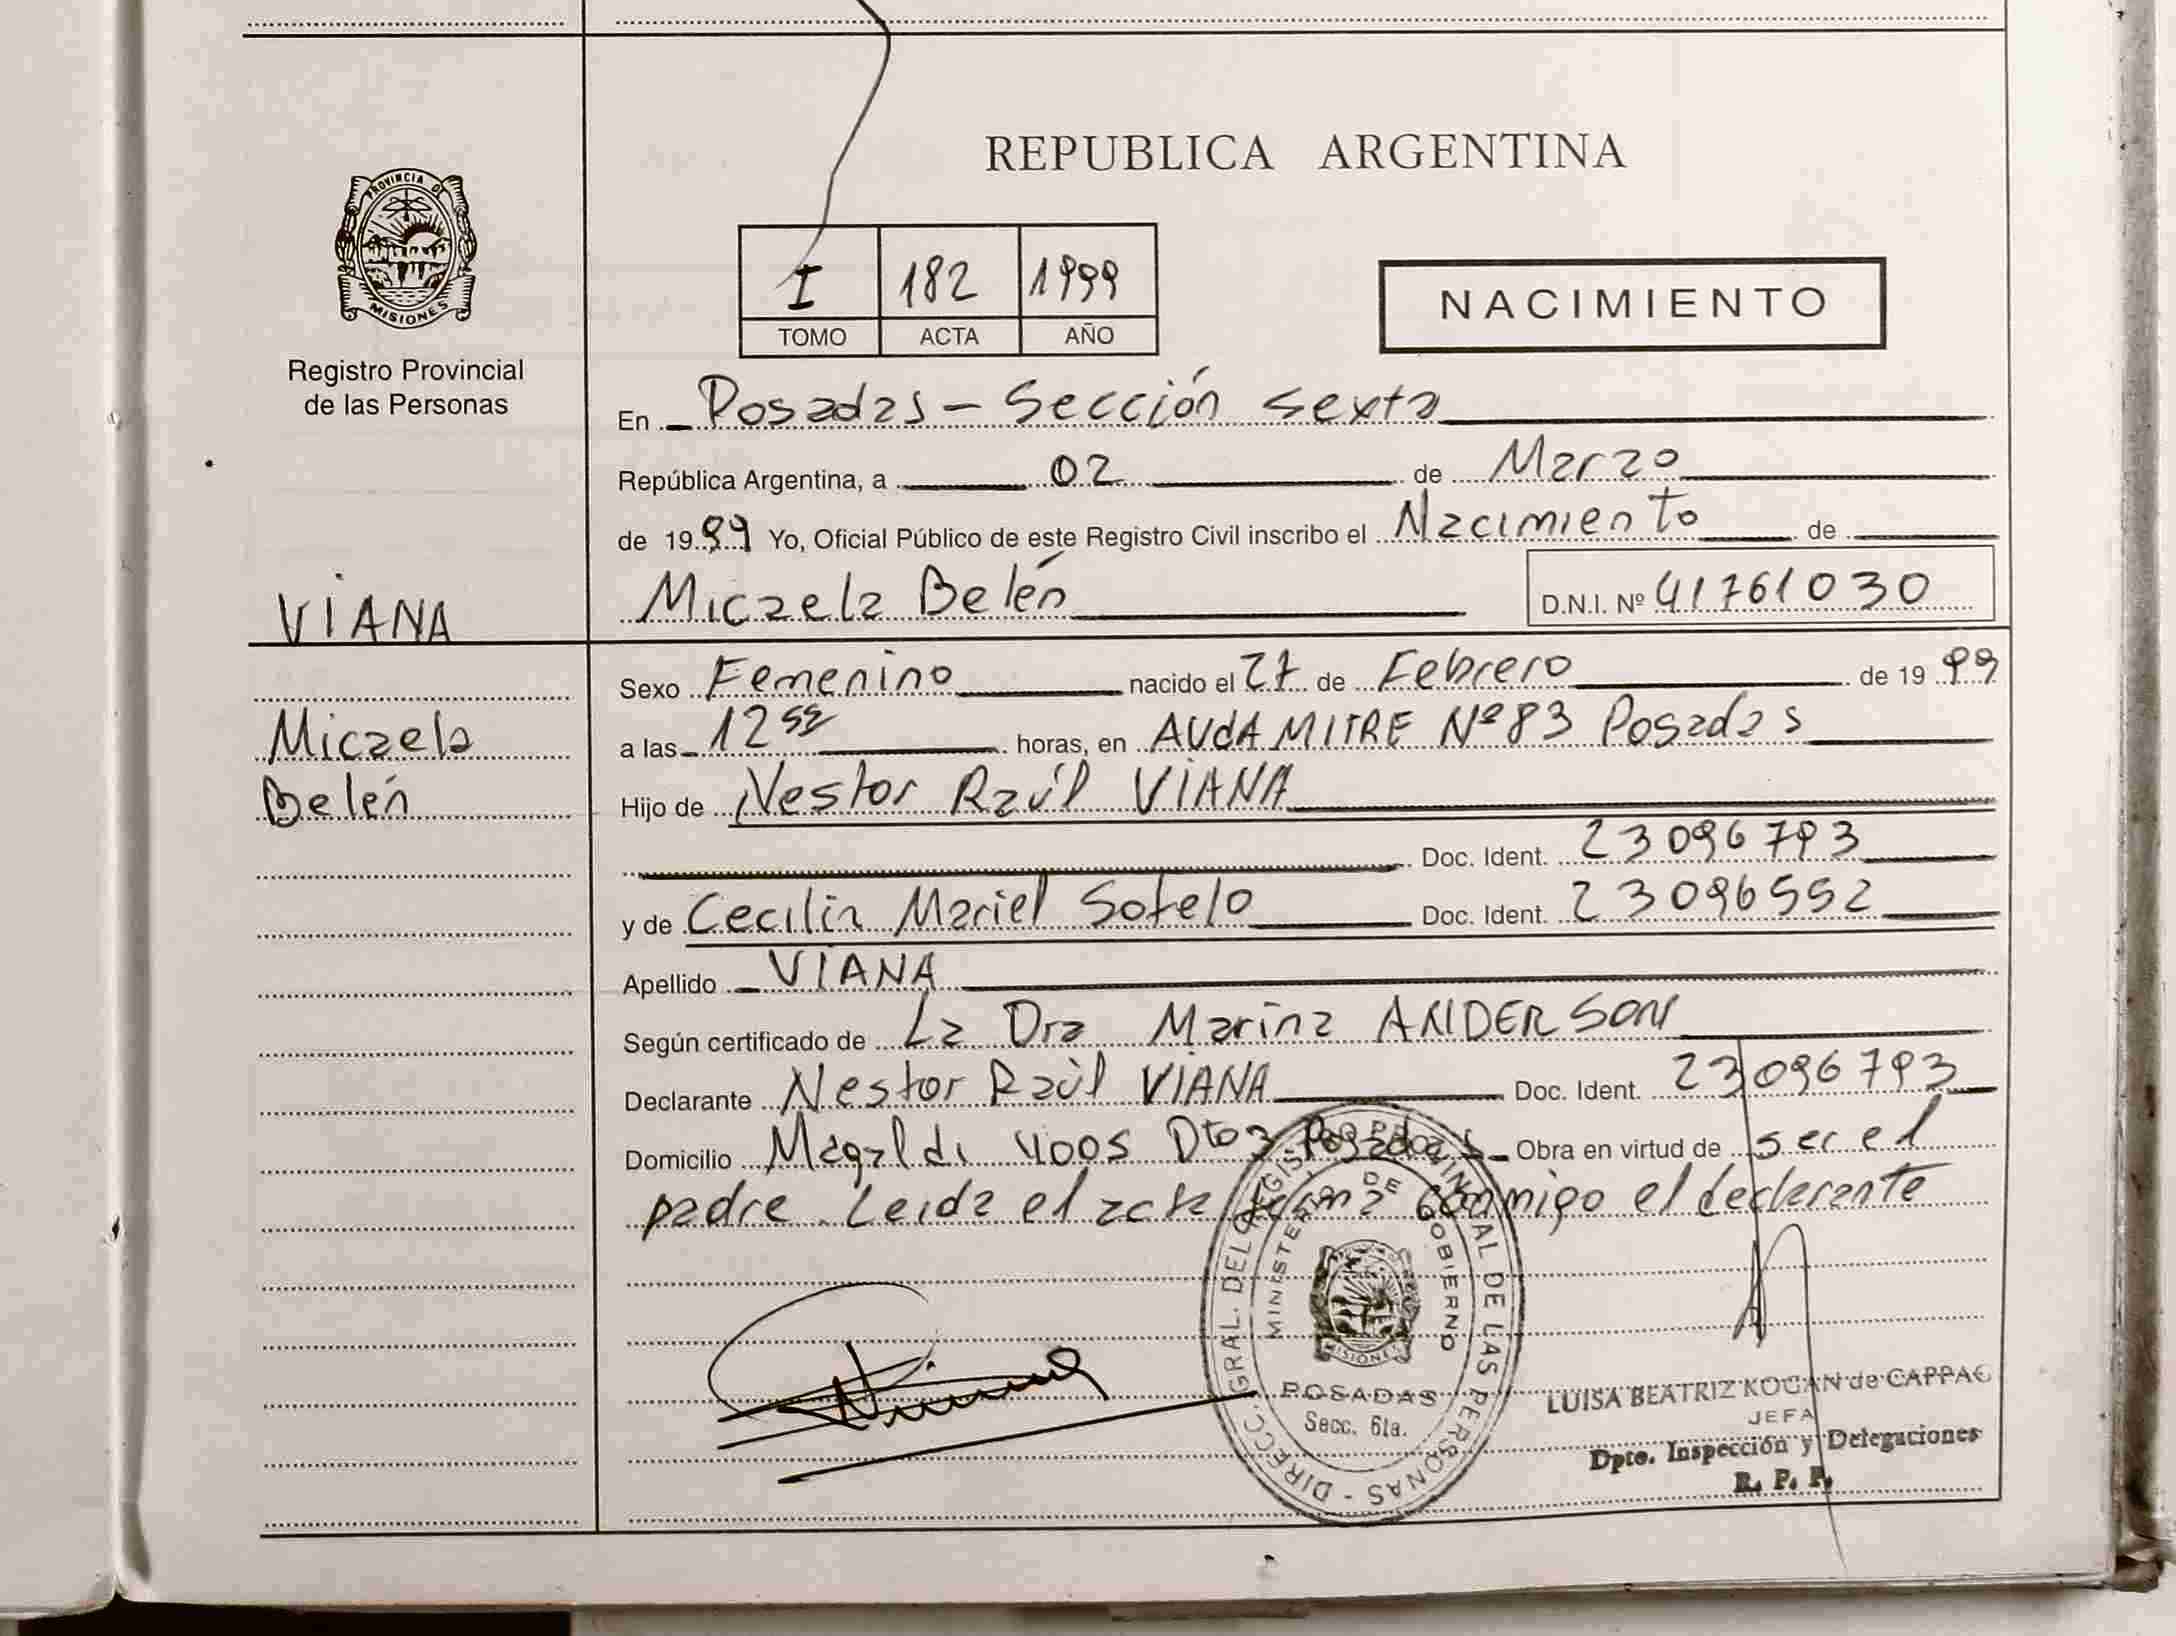 PROVINCIA DE
MISIONES
Registro Provincial
de las Personas
VIANA
Micaela
Belén
REPUBLICA ARGENTINA
I 182 1999
TOMO ACTA AÑO
NACIMIENTO
En Posadas - Sección Sexta
República Argentina, a 02 de Marzo
de 1999 Yo, Oficial Público de este Registro Civil inscribo el Nacimiento de
Micaela Belén D.N.I. Nº 41761030
Sexo Femenino nacido el 27 de Febrero de 1999
a las 12 horas, en AVdA MITRE Nº 83 Posadas
Hijo de Nestor Raúl VIANA
Doc. Ident. 23096793
y de Cecilia Mariel Sotelo Doc. Ident. 23096552
Apellido VIANA
Según certificado de La Dra Marina ANDERSON
Declarante Nestor Raúl VIANA Doc. Ident. 23096793
Domicilio Magaldi 4005 Posadas Obra en virtud de ser el
padre. Leida el acta firma conmigo el declarante
DIRECC. GRAL. DEL REGISTRO PROVINCIAL DE LAS PERSONAS -
MINISTERIO DE GOBIERNO
MISIONES
POSADAS
Secc. 6ta.
LUISA BEATRIZ KOGAN de CAPPAC
JEFA
Dpto. Inspección y Delegaciones
R. P. P.